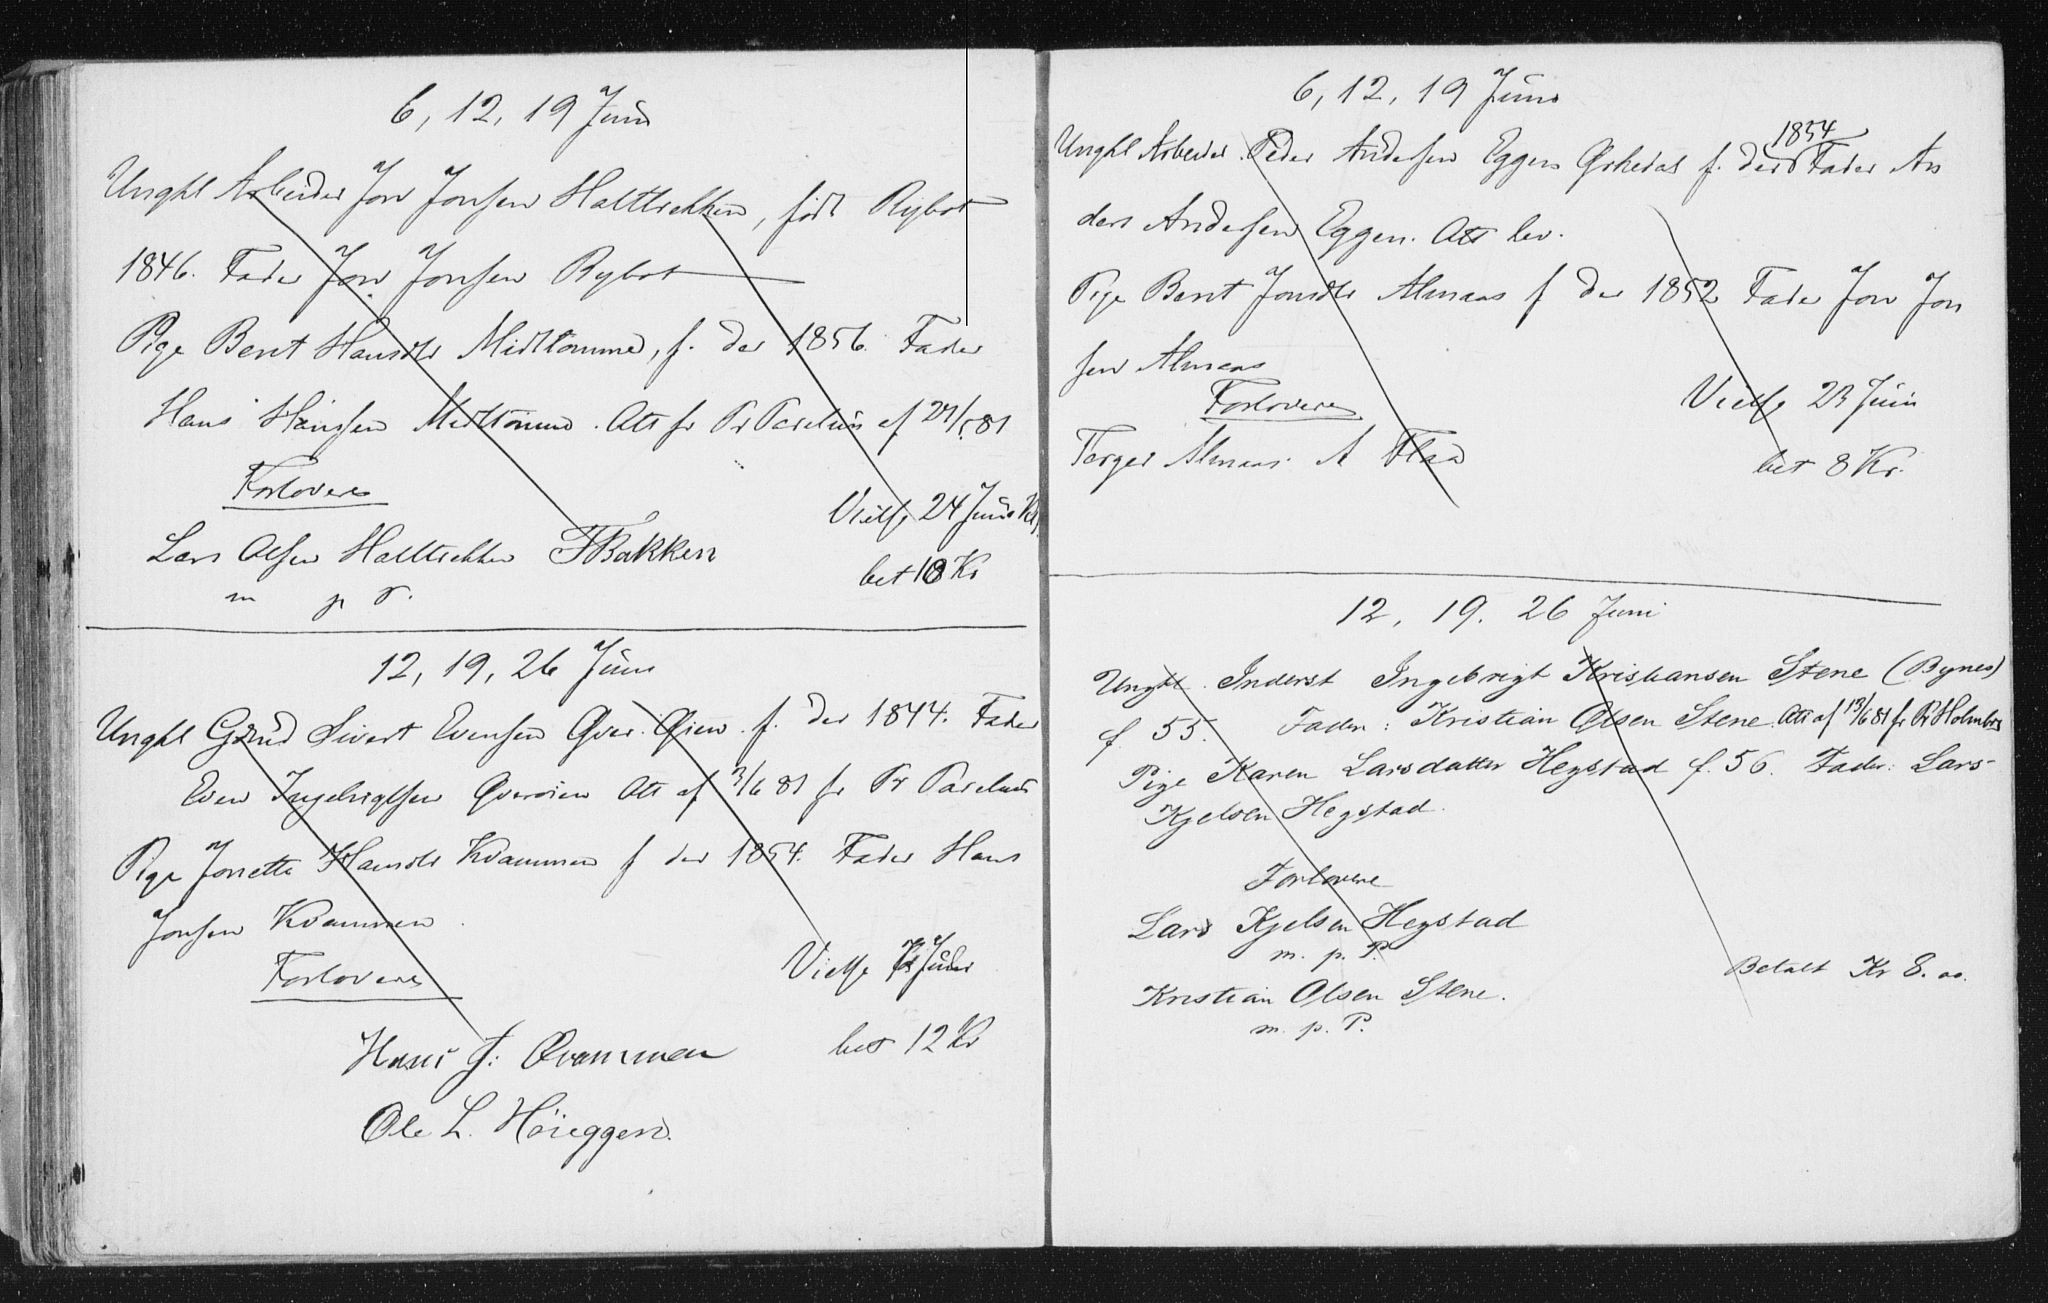 6, 12, 19 Juni
Unghl Arbeider Jon Jonsen Halttrekken, født Rybot
1846. Fader Jon Jonsen Rybot
Pige Berit Hansdtr Midttømme, f. der 1856. Fader
Hans Hansen Midttømme. Att fr Pr Parelius af /5 81
Forlovere
Lars Olsen Halttrekken FBakken
m p P.
Vielse 24 Juni Kl
bet 10 Kr
12, 19, 26 Juni
Unghl Grbrud Sivert Evensen Qver Øien f. der 1844. Fader
Even Ingebrigtsen Qverøien Att af 3/6 81 fr Pr Parelius
Pige Jonetta Hansdtr Kvammen f der 1854. Fader Hans
Jonsen Kvammen
Forlovere
Vielse Juli
Hans J: Qvammen
bet 12 Kr
Ole L. Höieggen.
6, 12, 19 Juni
Unghl Arbeider Peder Andersen Eggen Ørkedal f. der 1854 Fader An
ders Andersen Eggen. Att lev.
Pige Berit Jonsdtr Almaas f der 1852 Fader Jon Jon
sen Almaas
Forlovere
Vielse 23 Juni
Torger Almaas. A Flaa
bet 8 Kr.
12, 19. 26 Juni
Unghl. Inderst Ingebrigt Kristiansen Stene (Bynes)
f. 55. Fader: Kristian Olsen Stene Att af 13/6 81 fr Pr Holmboe
Pige Karen Larsdatter Hegstad f. 56. Fader: Lars
Kjelsen Hegstad.
Forlovere
Lars Kjelsen Hegstad
m. p. P.
Betalt Kr 8. oo.
Kristian Olsen Stene.
m. p. P.